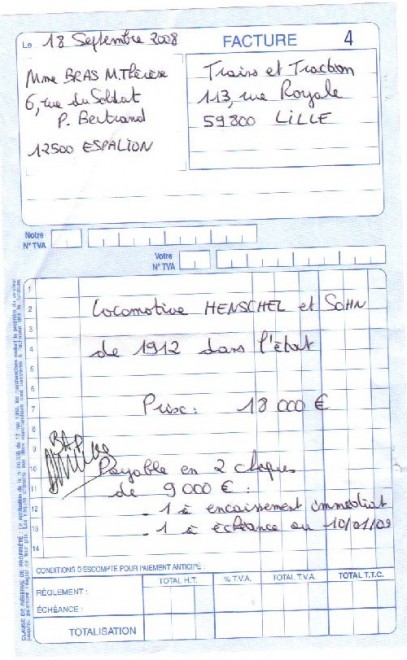 Le 18 Septembre 2008
FACTURE 4
Mme BRAS M.Thérèse
6, rue du Soldat
P. Bertrand
12500 ESPALION
Trains et Traction
113, rue Royale
59800 LILLE
Notre
N° TVA
Votre
N° TVA
1
2
3
4
5
6
7
8
9
10
11
12
13
14
Locomotive HENSCHEL et SOHN
de 1912 dans l'état
Prix : 18 000 €
BAP
Payable en 2 chèques
de 9 000 € :
- 1 à encaissement immédiat
- 1 à échéance au 10/01/09
CONDITIONS D'ESCOMPTE POUR PAIEMENT ANTICIPÉ :
RÈGLEMENT :
ÉCHÉANCE :
TOTAL H.T.
% T.V.A.
TOTAL T.V.A.
TOTAL T.T.C.
TOTALISATION
CLAUSE DE RÉSERVE DE PROPRIÉTÉ